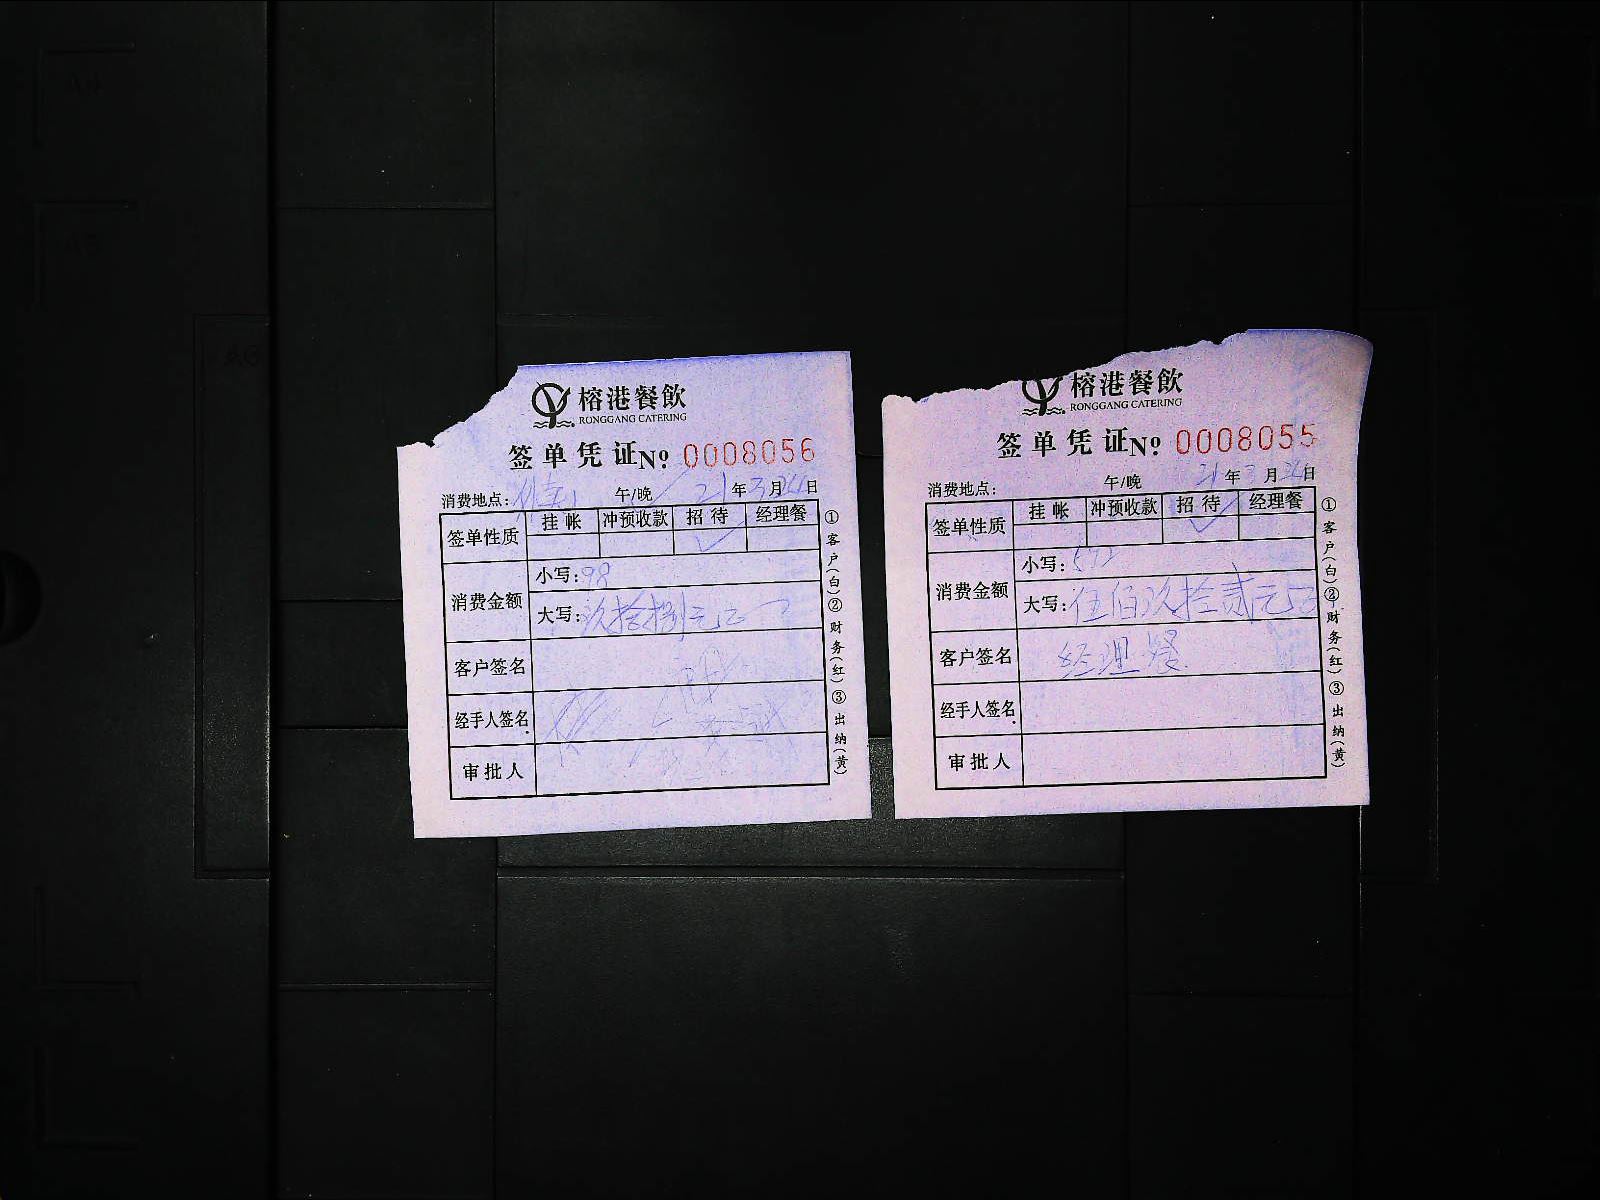 榕港餐飲
RONGGANG CATERING
签单凭证 No 0008056
消费地点: 午/晚 21年3月24日
签单性质 挂帐 冲预收款 招待 经理餐
✓
消费金额 小写: 98
大写: 玖拾捌元正
客户签名
经手人签名
审批人
①客户(白)②财务(红)③出纳(黄)
榕港餐飲
RONGGANG CATERING
签单凭证 No 0008055
消费地点: 午/晚 21年3月24日
签单性质 挂帐 冲预收款 招待 经理餐
✓
消费金额 小写: 592
大写: 伍佰玖拾贰元正
客户签名 经理餐
经手人签名
审批人
①客户(白)②财务(红)③出纳(黄)